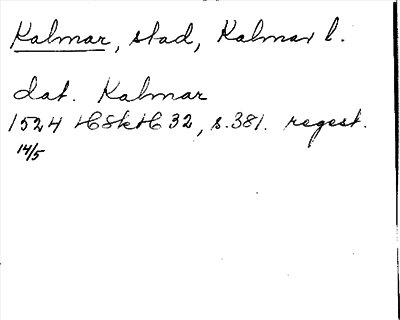 Kalmar, stad, Kalmar l.
dat. Kalmar
1524 HSkH 32, s.381. regest.
14/5